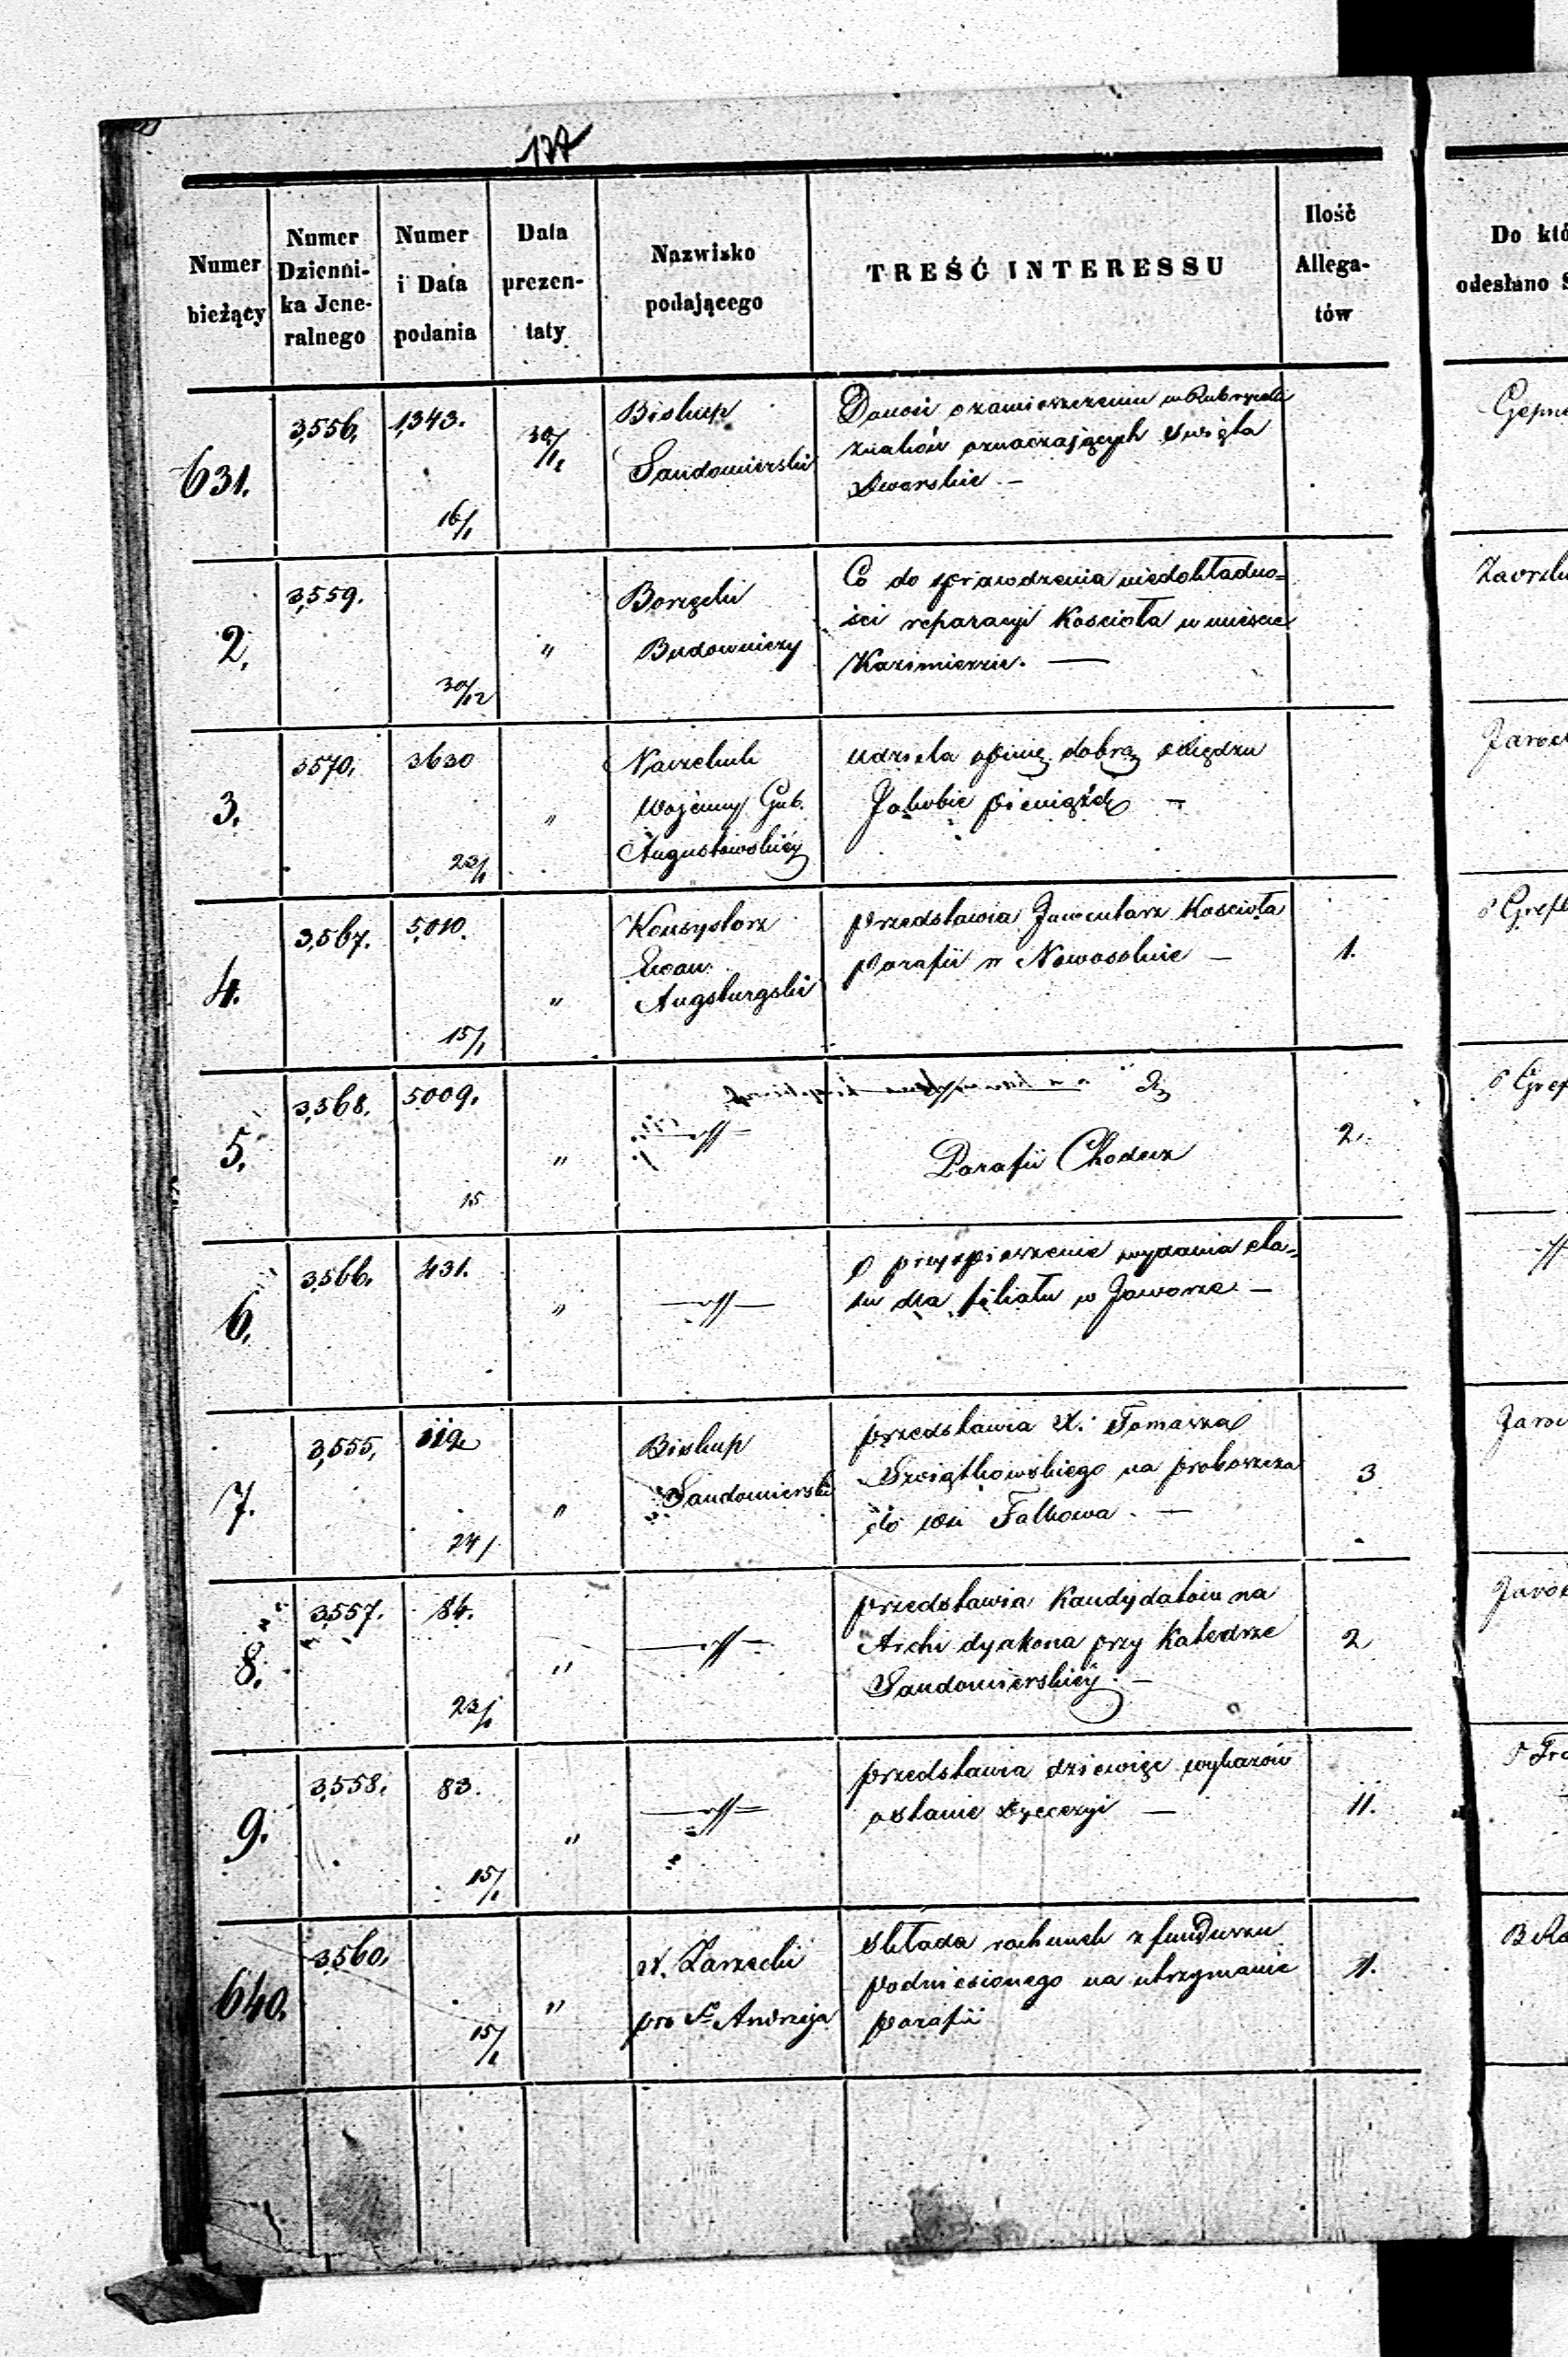 127
Numer bieżący
Numer Dzienni-ka Jene-ralnego
Numer i Data podania
Data prezen-taty
Nazwisko podającego
TREŚĆ INTERESSU
Ilość Allega-tów
Do któ
odesłano
631.
3,556.
1,343.
16/1
30/12
Biskup
Sandomierski
Donosi o zamieszczeniu w Rubryceli
znaków oznaczających święta
Dworskie. —
2.
3,559.
30/12
"
Budowniczy
Co do sprawdzenia niedokładno=
ści reparacyi Kościoła w mieście
Kazimierzu. —
3.
3570.
3630
23/1
"
Naczelnik
Wojenny Gub.
Augustowskiéj
udziela opinię dobrą o księdzu
Jakubie —
4.
3,567.
5,010.
15/1
"
Konsystorz
Ewan.
Augsburgski
przedstawia Inwentarz Kościoła
parafii w Nowosolnie —
1.
5.
3,568.
5009.
15
"
—"—
Parafii Chodecz
2.
6.
3,566.
431.
"
—"—
O przyspieszenie wydania eta-
tu dla filiału w Jaworze —
7.
3,555.
112
24/
"
Biskup
Sandomierski
przedstawia X. Tomasza
Świątkowskiego na proboszcza
do wsi Falkowa. —
3
8.
3557.
84.
23/1
"
—"—
przedstawia Kandydatów na
Archi dyakona przy Katedrze
Sandomierskiéj. —
2
9.
3,558.
83.
15/1
"
—"—
przedstawia dziewięć wykazów
o stanie dyecezyi —
11.
640.
3,560.
15/1
"
X. Zarzecki
pro. Sgo Andrzeja
składa rachunek z funduszu
podniesionego na utrzymanie
parafii
1.